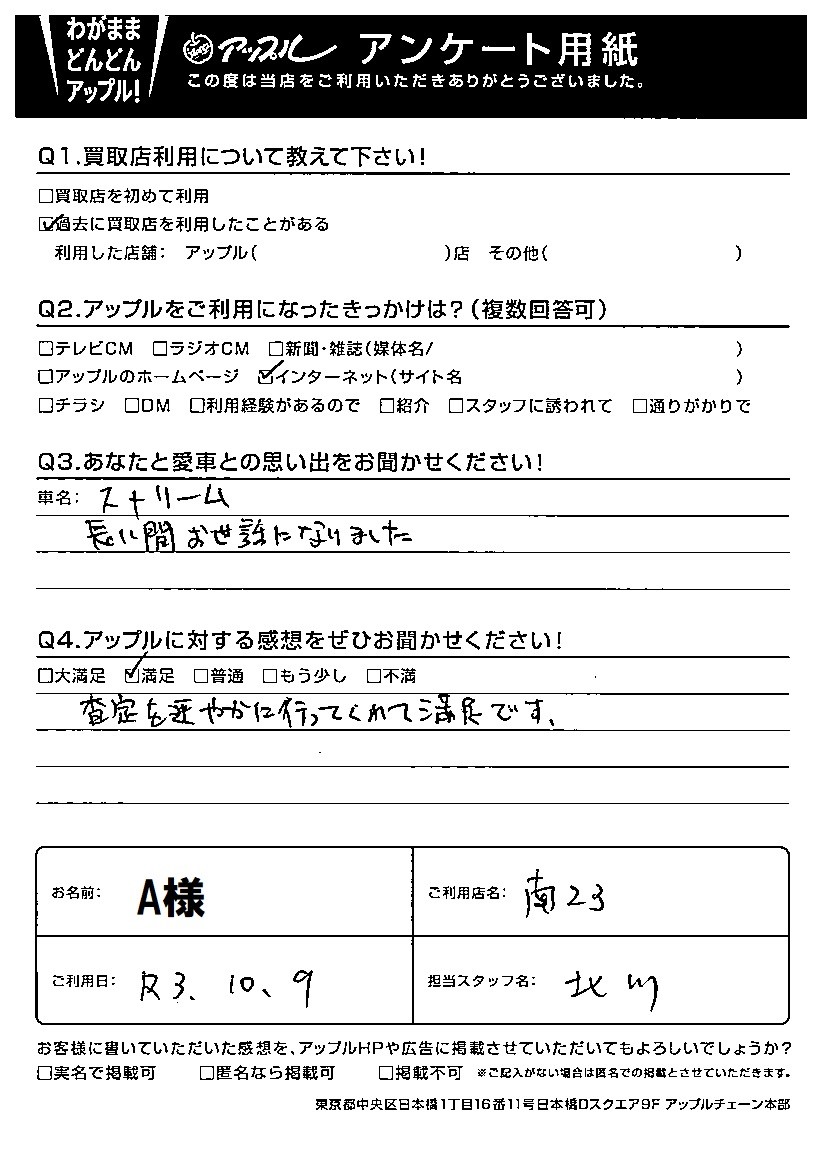 わがまま
どんどん
アップル!
アップル アンケート用紙
この度は当店をご利用いただきありがとうございました。
Q1.買取店利用について教えて下さい!
□買取店を初めて利用
☑過去に買取店を利用したことがある
利用した店舗: アップル( )店 その他( )
Q2.アップルをご利用になったきっかけは?(複数回答可)
□テレビCM □ラジオCM □新聞・雑誌(媒体名/ )
□アップルのホームページ ☑インターネット(サイト名 )
□チラシ □DM □利用経験があるので □紹介 □スタッフに誘われて □通りがかりで
Q3.あなたと愛車との思い出をお聞かせください!
車名: ストリーム
長い間お世話になりました
Q4.アップルに対する感想をぜひお聞かせください!
□大満足 ☑満足 □普通 □もう少し □不満
査定を速やかに行ってくれて満足です、
お名前: A様
ご利用店名: 南23
ご利用日: R3、10、9
担当スタッフ名: 北川
お客様に書いていただいた感想を、アップルHPや広告に掲載させていただいてもよろしいでしょうか?
□実名で掲載可 □匿名なら掲載可 □掲載不可 ※ご記入がない場合は匿名での掲載とさせていただきます。
東京都中央区日本橋1丁目16番11号日本橋Dスクエア9F アップルチェーン本部